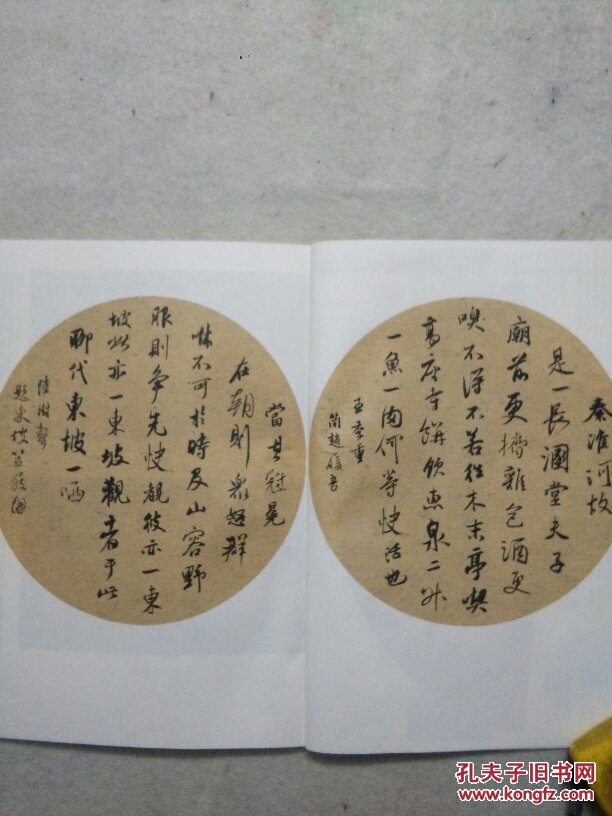 秦淮河故
是一長溷堂夫子
廟前更擠雜包酒更
嗅不得不若往木末亭喫
高座寺餅飲惠泉二升
一魚一肉何等快活也
王季重
簡趙履吾
當其冠冕
在朝則眾怒群
咻不可於時及山容野
服則爭先快覩彼亦一東
坡此亦一東坡觀者于此
聊代東坡一哂
陸樹聲
題東坡笠屐圖
孔夫子旧书网
www.kongfz.com